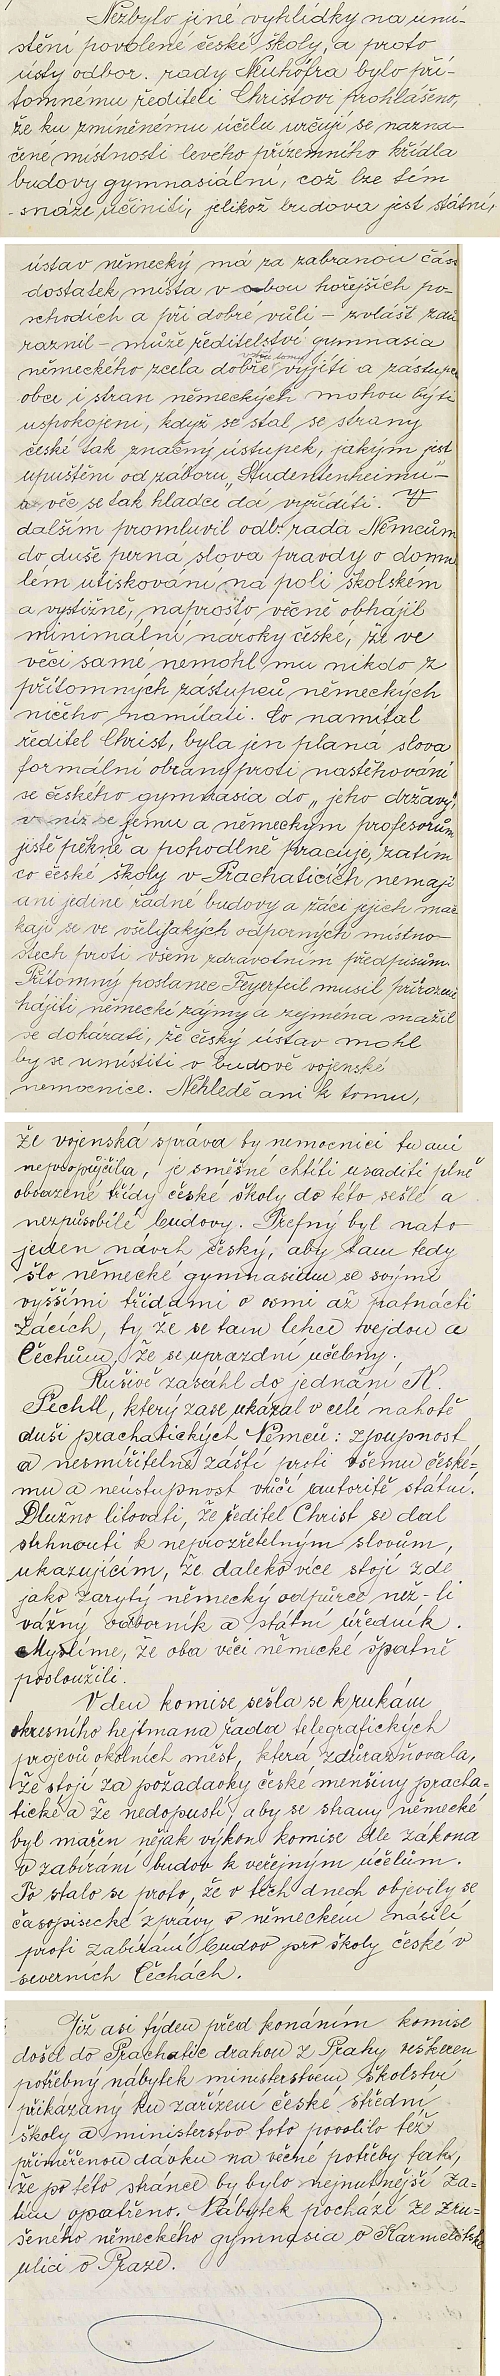 Nezbylo jiné vyhlídky na umí-
stění povolené české školy, a proto
ústy odbor. rady Neuhöfra bylo pří-
tomnému řediteli Christovi prohlášeno,
že ku zmíněnému účelu určují se nazna-
čené místnosti levého přízemního křídla
budovy gymnasiální, což lze tím
snáze učiniti, jelikož budova jest státní,
ústav německý má za zabranou čás
dostatek místa v obou hořejších po-
schodích a při dobré vůli - zvlášť zdů
raznil - může ředitelství gymnasia
německého zcela dobře vyjíti a zástupc
obce i stran německých mohou býti
uspokojeni, když se stal, se strany
české tak značný ústupek, jakým jest
upuštění od záboru „Studentenheimu"-
a věc se tak hladce dá vyříditi. V
dalším promluvil odb. rada Němcům
do duše perná slova pravdy o doma
lém utiskování na poli školském
a vystižně, naprosto věcně obhájil
minimální nároky české, že ve
věci samé nemohl mu nikdo z
přítomných zástupců německých
ničeho namítati. Co namítal
ředitel Christ, byla jen planá slova
formální obrany proti nastěhování
se českého gymnasia do „jeho državy",
v níž se jemu a německým profesorům
jistě pěkně a pohodlně pracuje, zatím
co české školy v Prachaticích nemají
ani jediné řádné budovy a žáci jejich mač
kají se ve všelijakých odporných místno-
stech proti všem zdravotním předpisům.
Přítomný poslanec Feyerfeil musil přirozeně
hájiti německé zájmy a zejména snažil
se dokázati, že český ústav mohl
by se umístiti v budově vojenské
nemocnice. Nehledě ani k tomu,
že vojenská správa by nemocnici tu ani
nepropůjčila, je směšné chtíti vsaditi plně
obsazené třídy české školy do této sešlé a
nezpůsobilé budovy. Trefný byl na to
jeden návrh český, aby tam tedy
šlo německé gymnasium se svými
vyššími třídami o osmi až patnácti
žácích, ty že se tam lehce vejdou a
Čechům, že se uprazdní učebny.
Rušivě zasáhl do jednání K.
Pechtl, který zase ukázal v celé nahotě
duši prachatických Němců: zpupnost
a nesmiřitelné záští proti všemu české-
mu a neústupnost vůči autoritě státní.
Dlužno litovati, že ředitel Christ se dal
strhnouti k neprozřetelným slovům,
ukazujícím, že daleko více stojí zde
jako zarytý německý odpůrce než-li
vážný odborník a státní úředník.
Myslíme, že oba věci německé špatně
posloužili.
V den komise sešla se k rukám
okresního hejtmana řada telegrafických
projevů okolních měst, která zdůrazňovala,
že stojí za požadavky české menšiny pracha-
tické a že nedopustí, aby se strany německé
byl mařen nějak výkon komise dle zákona
o zabírání budov k veřejným účelům.
To stalo se proto, že v těch dnech objevily se
časopisecké zprávy o německém násilí
proti zabírání budov pro školy české v
severních Čechách.
Již asi týden před konáním komise
došel do Prachatic drahou z Prahy veškeren
potřebný nábytek ministerstvem školství
přikázaný ku zařízení české střední
školy a ministerstvo toto povolilo též
přiměřenou dávku na věcné potřeby tak,
že po této stránce by bylo nejnutnější za-
tím opatřeno. Nábytek pochází ze zru-
šeného německého gymnasia v Karmelitské
ulici v Praze.